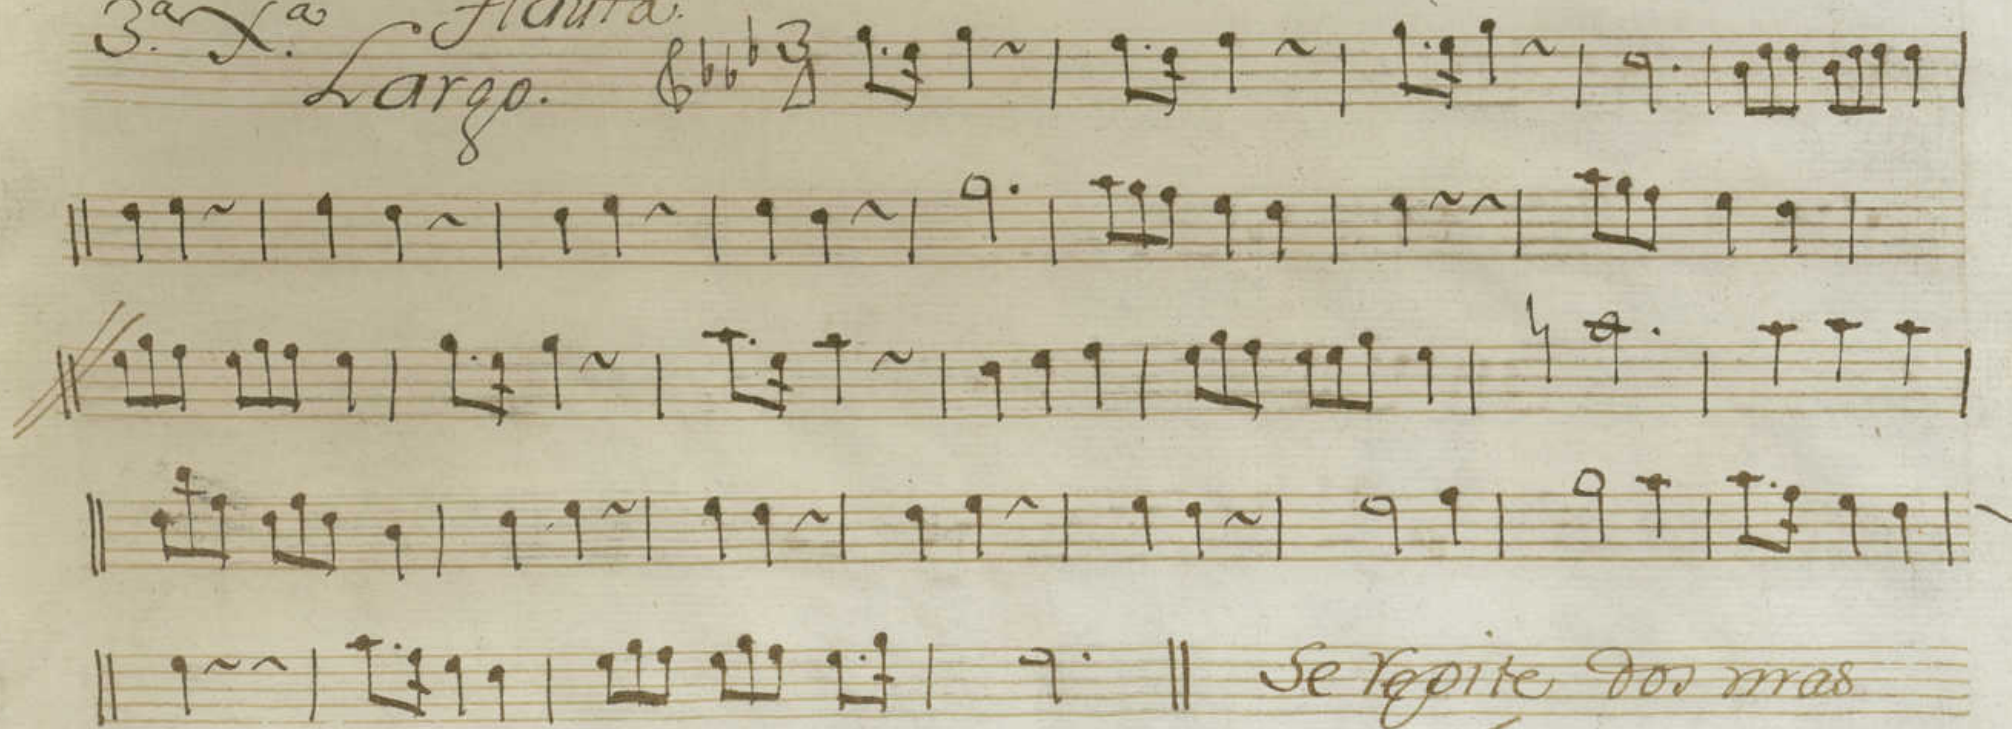 3.ª X.ª flauta.
Largo.
3
Se repite dos mas